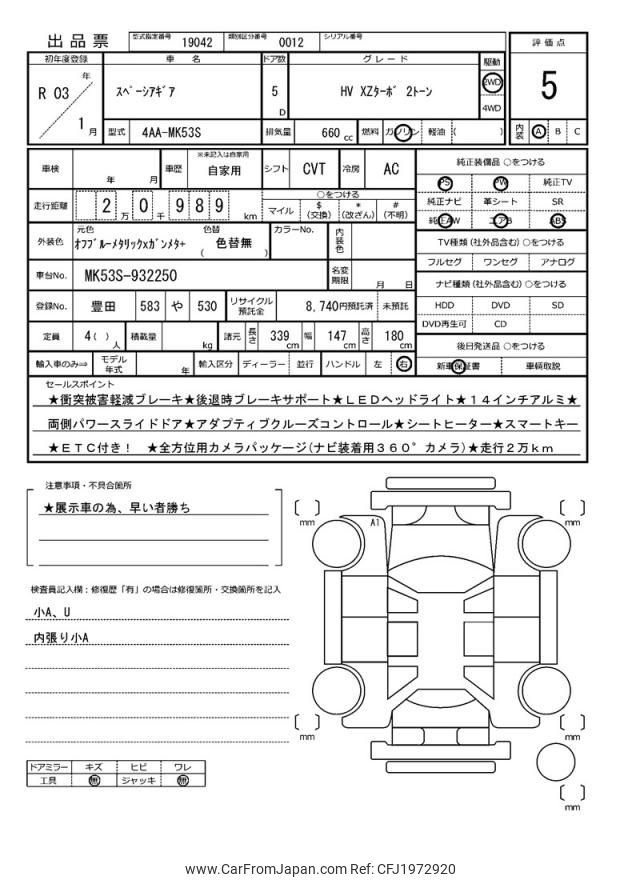 出品票 型式指定番号 19042 類別区分番号 0012 シリアル番号
評価点
5
内装 A B C
初年度登録 車名 ドア数 グレード 駆動
R 03 年 1 月
スペーシアギア 5 D HV XZターボ 2トーン 2WD 4WD
型式 4AA-MK53S 排気量 660 cc 燃料 ガソリン 軽油 ( )
車検 年 月 車歴 ※未記入は自家用 自家用 シフト CVT 冷房 AC
走行距離 2 万 0 千 9 8 9 km
○をつける
マイル $ (交換) * (改ざん) # (不明)
外装色 元色 オフブルーメタリックxガンメタ+ 色替 ( 色替無 ) カラーNo. 内装色
車台No. MK53S-932250 名変期限 月 日
登録No. 豊田 583 や 530 リサイクル預託金 8,740円預託済 未預託
定員 4( ) 人 積載量 kg 諸元 長さ 339 cm 幅 147 cm 高さ 180 cm
輸入車のみ⇒ モデル年式 年 輸入区分 ディーラー 並行 ハンドル 左 右
純正装備品 ○をつける
PS PW 純正TV
純正ナビ 革シート SR
純正AW エアB ABS
TV種類 (社外品含む) ○をつける
フルセグ ワンセグ アナログ
ナビ種類 (社外品含む) ○をつける
HDD DVD SD
DVD再生可 CD
後日発送品 ○をつける
新車保証書 車輌取説
セールスポイント
★衝突被害軽減ブレーキ★後退時ブレーキサポート★LEDヘッドライト★14インチアルミ★
両側パワースライドドア★アダプティブクルーズコントロール★シートヒーター★スマートキー
★ETC付き! ★全方位用カメラパッケージ(ナビ装着用360°カメラ)★走行2万km
注意事項・不具合箇所
★展示車の為、早い者勝ち
検査員記入欄:修復歴「有」の場合は修復箇所・交換箇所を記入
小A、U
内張り小A
ドアミラー キズ ヒビ ワレ
工具 無 ジャッキ 無
A1
mm
mm
mm
mm
mm
www.CarFromJapan.com Ref: CFJ1972920